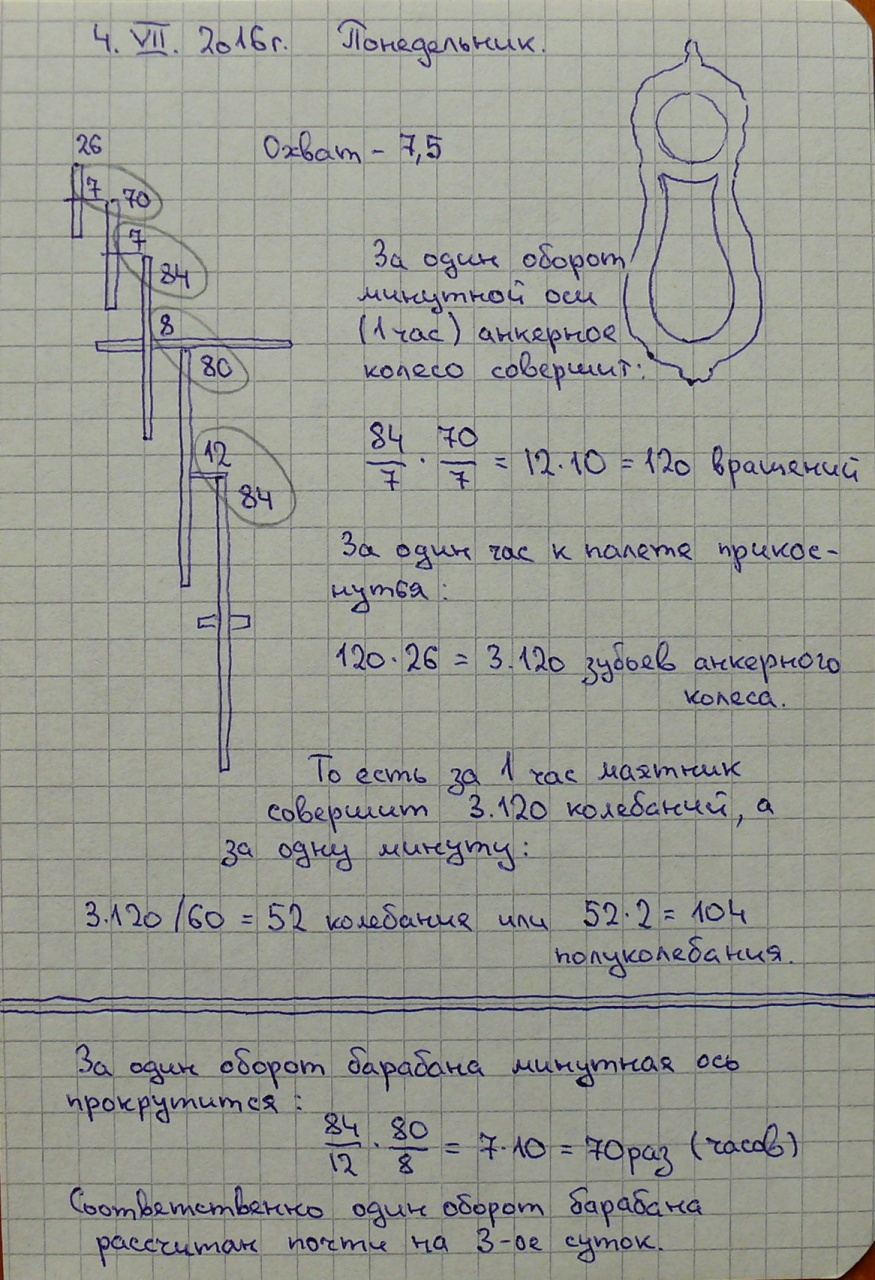 4. VII. 2016г. Понедельник.
26
Охват - 7,5
7 70
7
84
8
80
12
84
За один оборот
минутной оси
(1 час) анкерное
колесо совершит:
84/7 · 70/7 = 12·10 = 120 вращений
За один час к палете прикос-
нутся:
120·26 = 3.120 зубьев анкерного
колеса.
То есть за 1 час маятник
совершит 3.120 колебаний, а
за одну минуту:
3.120/60 = 52 колебания или 52·2 = 104
полуколебания.
За один оборот барабана минутная ось
прокрутится:
84/12 · 80/8 = 7·10 = 70 раз (часов)
Соответственно один оборот барабана
рассчитан почти на 3-ое суток.